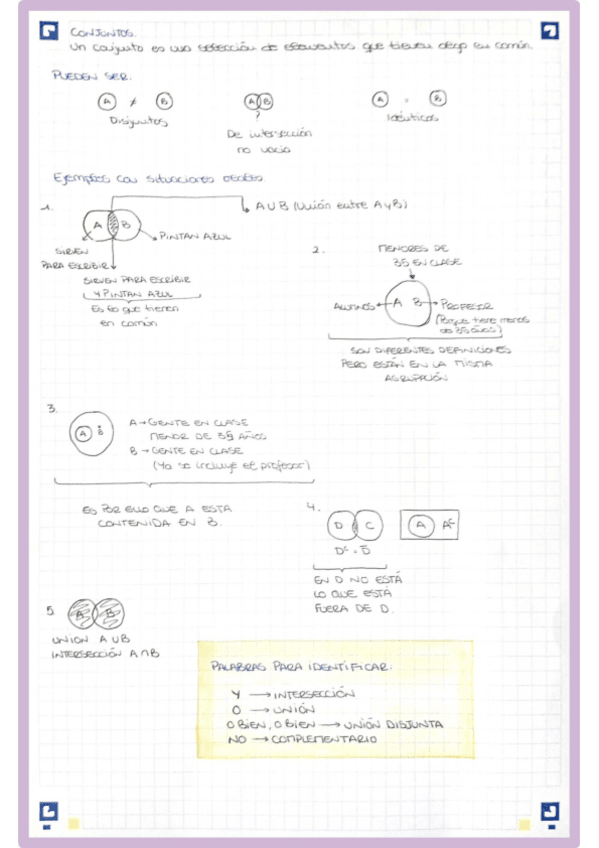 CONJUNTOS.
Un conjunto es una selección de elementos que tienen algo en común.
PUEDEN SER:
A ≠ B
A B
A = B
Disjuntos
?
Idénticos
De intersección
no vacía
Ejemplos con situaciones reales
1.
A ∪ B (Unión entre A y B)
A B
PINTAN AZUL
SIRVEN
PARA ESCRIBIR
SIRVEN PARA ESCRIBIR
Y PINTAN AZUL
Es lo que tienen
en común
2.
MENORES DE
35 EN CLASE
ALUMNOS ← A B → PROFESOR
(Porque tiene menos
de 35 años)
SON DIFERENTES DEFINICIONES
PERO ESTÁN EN LA MISMA
AGRUPACIÓN
3.
A B
A → GENTE EN CLASE
MENOR DE 35 AÑOS
B → GENTE EN CLASE
(Ya se incluye el profesor)
ES POR ELLO QUE A ESTA
CONTENIDA EN B.
4.
D C
A Aᶜ
Dᶜ = D̅
EN D NO ESTÁ
LO QUE ESTÁ
FUERA DE D.
5
A B
UNION A ∪ B
INTERSECCIÓN A ∩ B
PALABRAS PARA IDENTIFICAR:
Y → INTERSECCIÓN
O → UNIÓN
O BIEN, O BIEN → UNIÓN DISJUNTA
NO → COMPLEMENTARIO